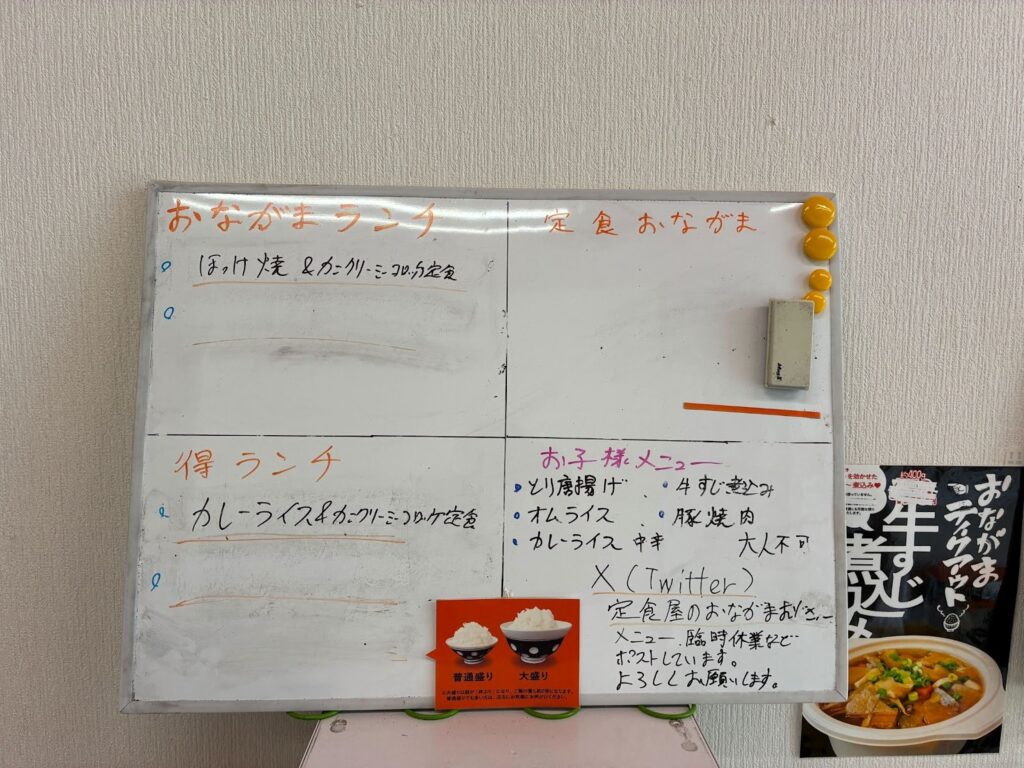 おながまランチ
ほっけ焼 &カニクリーミーコロッケ定食
定食 おながま
得 ランチ
カレーライス&カニクリーミーコロッケ定食
お子様メニュー
とり唐揚げ、 牛すじ煮込み
オムライス、 豚焼肉
カレーライス 中辛 大人不可
X (Twitter)
定食屋のおながま
メニュー、臨時休業など
ポストしています。
よろしくお願いします。
普通盛り 大盛り
おながま
テイクアウト
牛すじ
煮込み